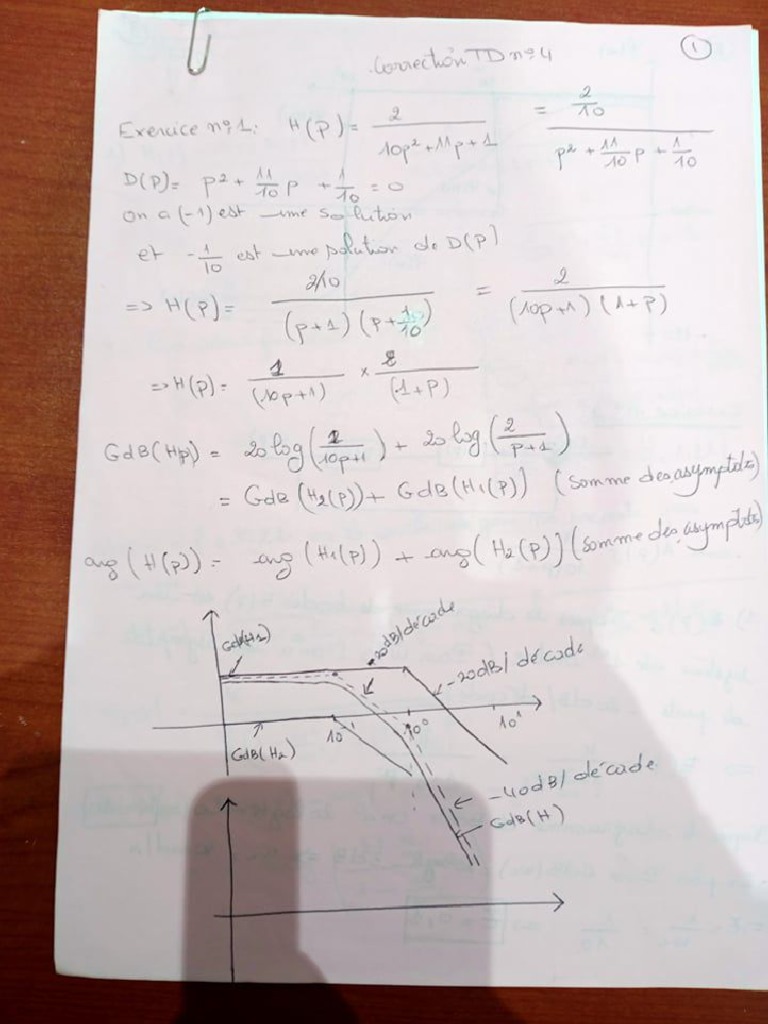 Correction TD n°4
1
Exercice n°1: H(p) = 2 / (10p² + 11p + 1) = (2/10) / (p² + 11/10 p + 1/10)
D(p) = p² + 11/10 p + 1/10 = 0
on a (-1) est une solution
et -1/10 est une solution de D(p)
=> H(p) = (2/10) / ((p+1)(p+1/10)) = 2 / ((10p+1)(1+p))
=> H(p) = 1/(10p+1) × 2/(1+p)
GdB(Hp) = 20log(1/(10p+1)) + 20log(2/(p+1))
= GdB(H2(p)) + GdB(H1(p)) (somme des asymptotes)
arg(H(p)) = arg(H1(p)) + arg(H2(p)) (somme des asymptotes)
GdB(H1)
-20dB/décade
-20dB/décade
GdB(H2)
10⁰
10¹
-40dB/décade
GdB(H)